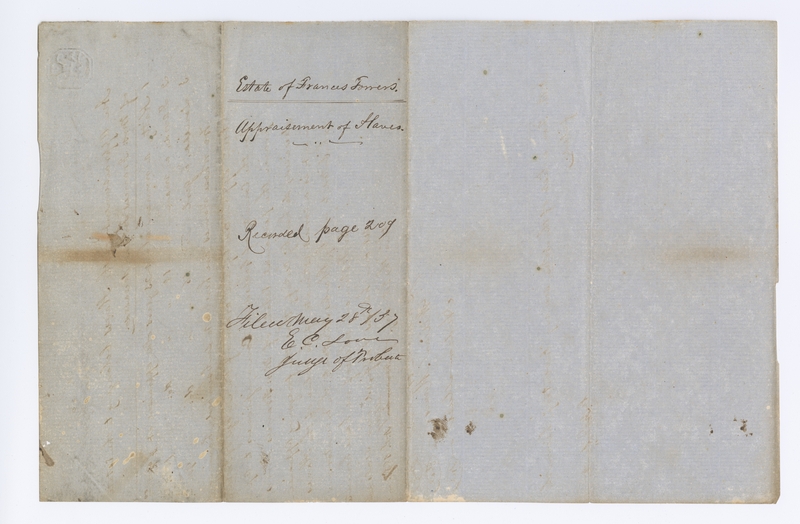 Estate of Frances Towers.
Appraisement of Slaves.
Recorded page 209
Filed May 28th /57.
E. C. Love
Judge of Probate